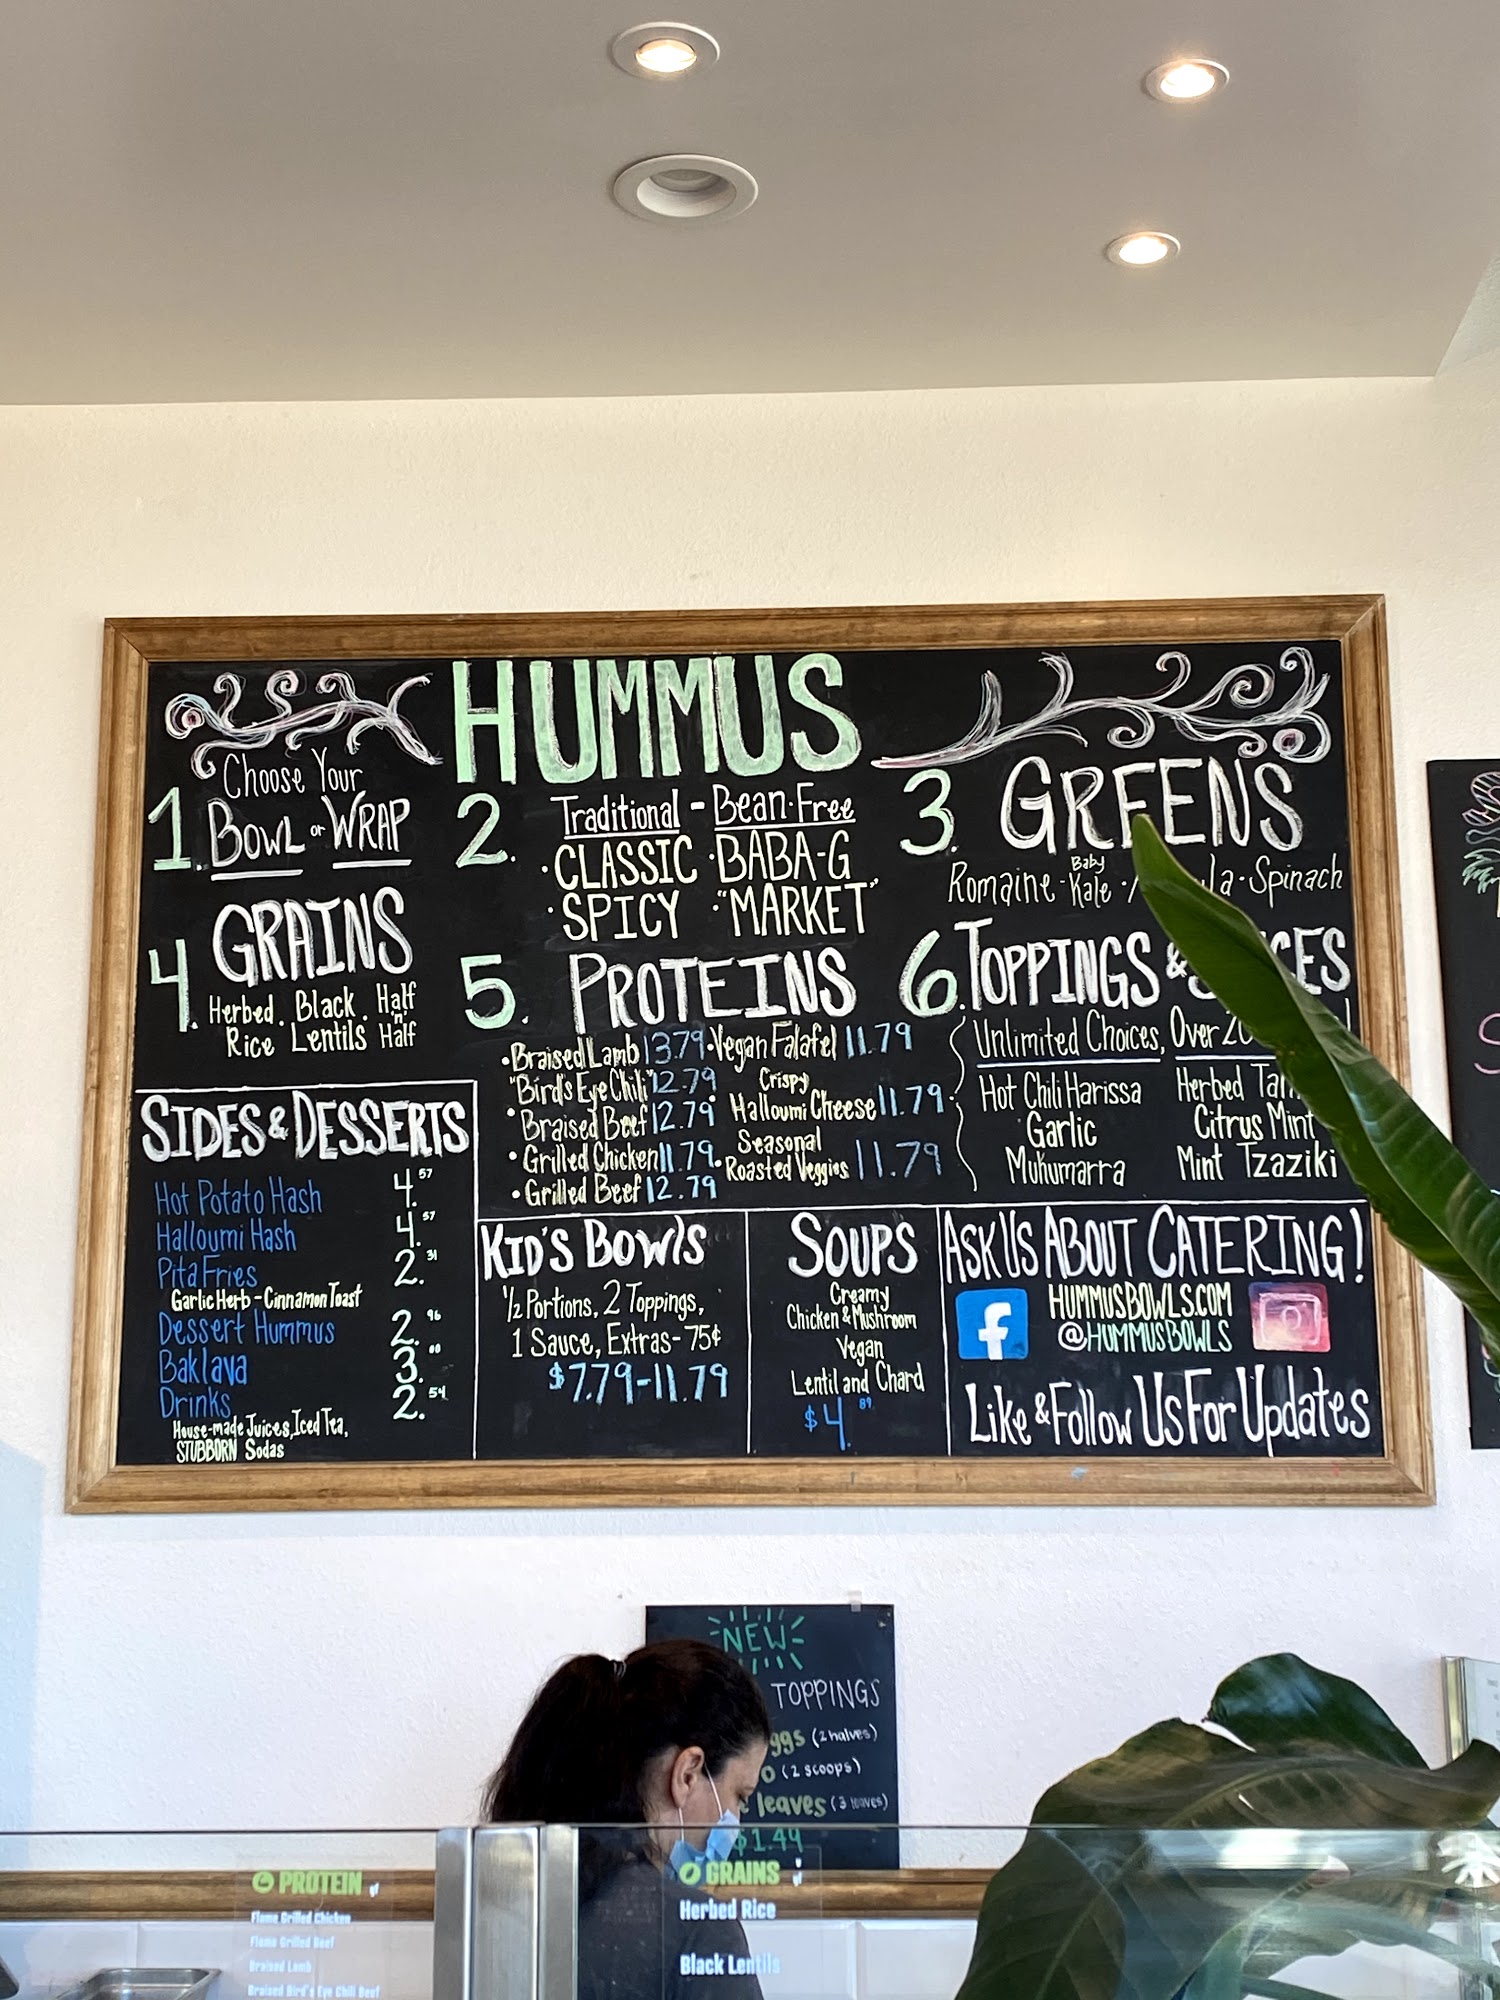 HUMMUS
1. Choose Your
BOWL or WRAP
2. Traditional - Bean-Free
·CLASSIC ·BABA-G
·SPICY ·"MARKET"
3. GREENS
Romaine - Baby Kale · Spinach
4. GRAINS
Herbed Rice · Black Lentils · Half 'n' Half
5. PROTEINS
·Braised Lamb 13.79
"Bird's Eye Chili" 12.79
·Braised Beef 12.79
·Grilled Chicken 11.79
·Grilled Beef 12.79
·Vegan Falafel 11.79
·Crispy
Halloumi Cheese 11.79
·Seasonal
Roasted Veggies 11.79
6. TOPPINGS &
Unlimited Choices, Over
Hot Chili Harissa
Garlic
Muhumarra
Herbed
Citrus Mint
Mint Tzaziki
SIDES & DESSERTS
Hot Potato Hash 4.57
Halloumi Hash 4.57
Pita Fries 2.31
Garlic Herb - Cinnamon Toast
Dessert Hummus 2.96
Baklava 3.00
Drinks 2.54
House-made Juices, Iced Tea,
STUBBORN Sodas
KID'S BOWLS
1/2 Portions, 2 Toppings,
1 Sauce, Extras - 75¢
$7.79-11.79
SOUPS
Creamy
Chicken & Mushroom
Vegan
Lentil and Chard
$4.89
ASK US ABOUT CATERING!
f
HUMMUSBOWLS.COM
@HUMMUSBOWLS
Like & Follow Us For Updates
NEW
TOPPINGS
(2 halves)
(2 scoops)
leaves (3 leaves)
$1.49
PROTEIN gf
Flame Grilled Chicken
Flame Grilled Beef
Braised Lamb
Braised Bird's Eye Chili Beef
GRAINS
Herbed Rice
Black Lentils